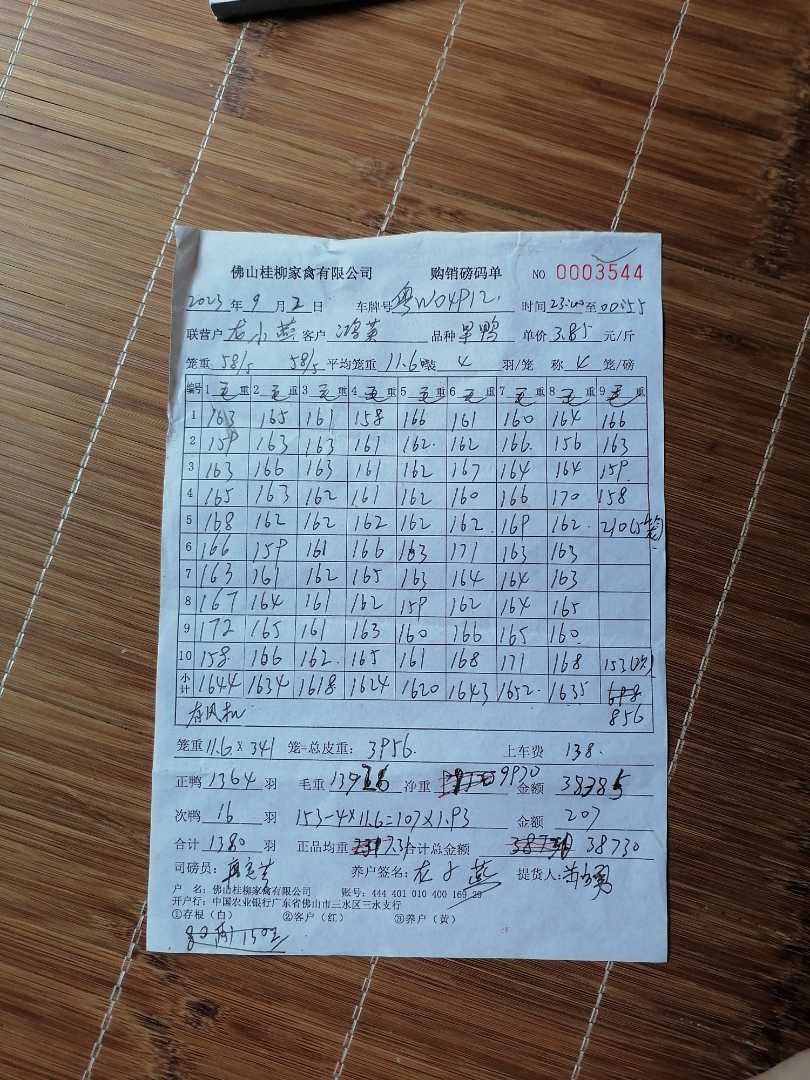 佛山桂柳家禽有限公司 购销磅码单 NO 0003544
2023年9月2日 车牌号 粤W04P12. 时间23:00至00:55
联营户 龙小燕 客户 鸿英 品种 旱鸭 单价 3.85 元/斤
笼重 58/5 58/5 平均笼重 11.6 装 4 羽/笼 称 4 笼/磅
编号 1毛重 2毛重 3毛重 4毛重 5毛重 6毛重 7毛重 8毛重 9毛重
1 163 165 161 158 166 161 160 164 166
2 159 163 163 161 162. 162 166. 156 163
3 163 166 163 161 162 167 164 164 159.
4 165 163 162 161 162 160 166 170 158
5 168 162 162 162 162 162. 169 162. 210(5笼)
6 166 159 161 166 163 171 163 163
7 163 161 162 165 163 164 164 163
8 167 164 161 162 159 162 164 165
9 172 165 161 163 160 166 165 160
10 158. 166 162. 165 161 168 171 168 153(次)
小计 1644 1634 1618 1624 1620 1643 1652. 1635
856
有风机
笼重 11.6×341 笼-总皮重: 3956. 上车费 138.
正鸭 1364 羽 毛重 净重 9970 金额 38385
次鸭 16 羽 153-4×11.6=107×1.93 金额 207
合计 1380 羽 正品均重 7.31 合计总金额 38730
司磅员: 养户签名: 龙小燕 提货人:
户 名: 佛山桂柳家禽有限公司 账号: 444 401 010 400 169 29
开户行: 中国农业银行广东省佛山市三水区三水支行
①存根（白） ②客户（红） ③养户（黄）